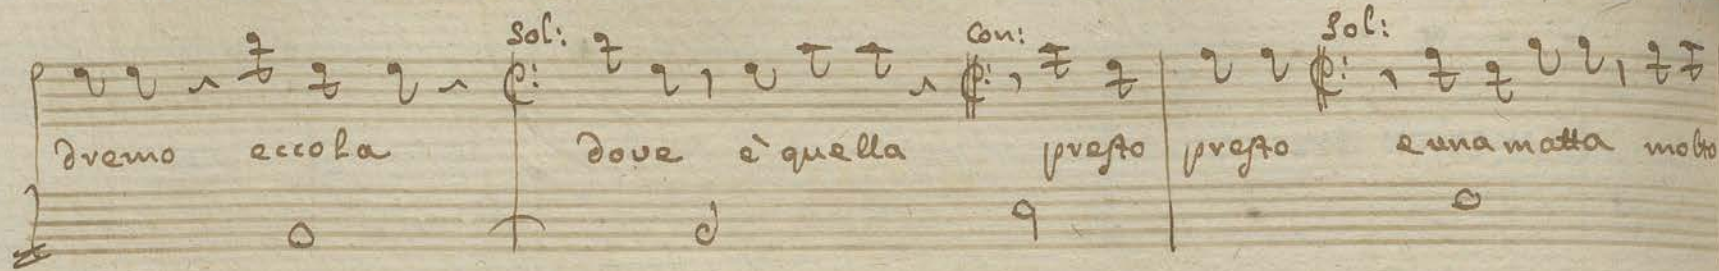 Sol: Con: Sol:
dremo eccola dove è quella presto presto e una matta molto